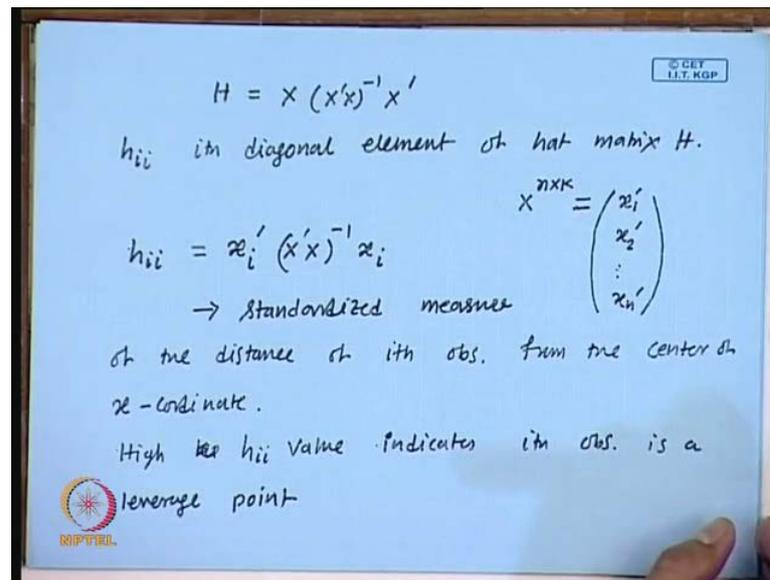 © CET
I.I.T. KGP
H = X (X'X)⁻¹ X'
hᵢᵢ ith diagonal element of hat matrix H.
X^{n×k} = ( x₁'
x₂'
⋮
xₙ' )
hᵢᵢ = xᵢ' (X'X)⁻¹ xᵢ
→ standardized measure
of the distance of ith obs. from the center of
x-cordinate.
High hᵢᵢ value indicates ith obs. is a
leverage point
NPTEL